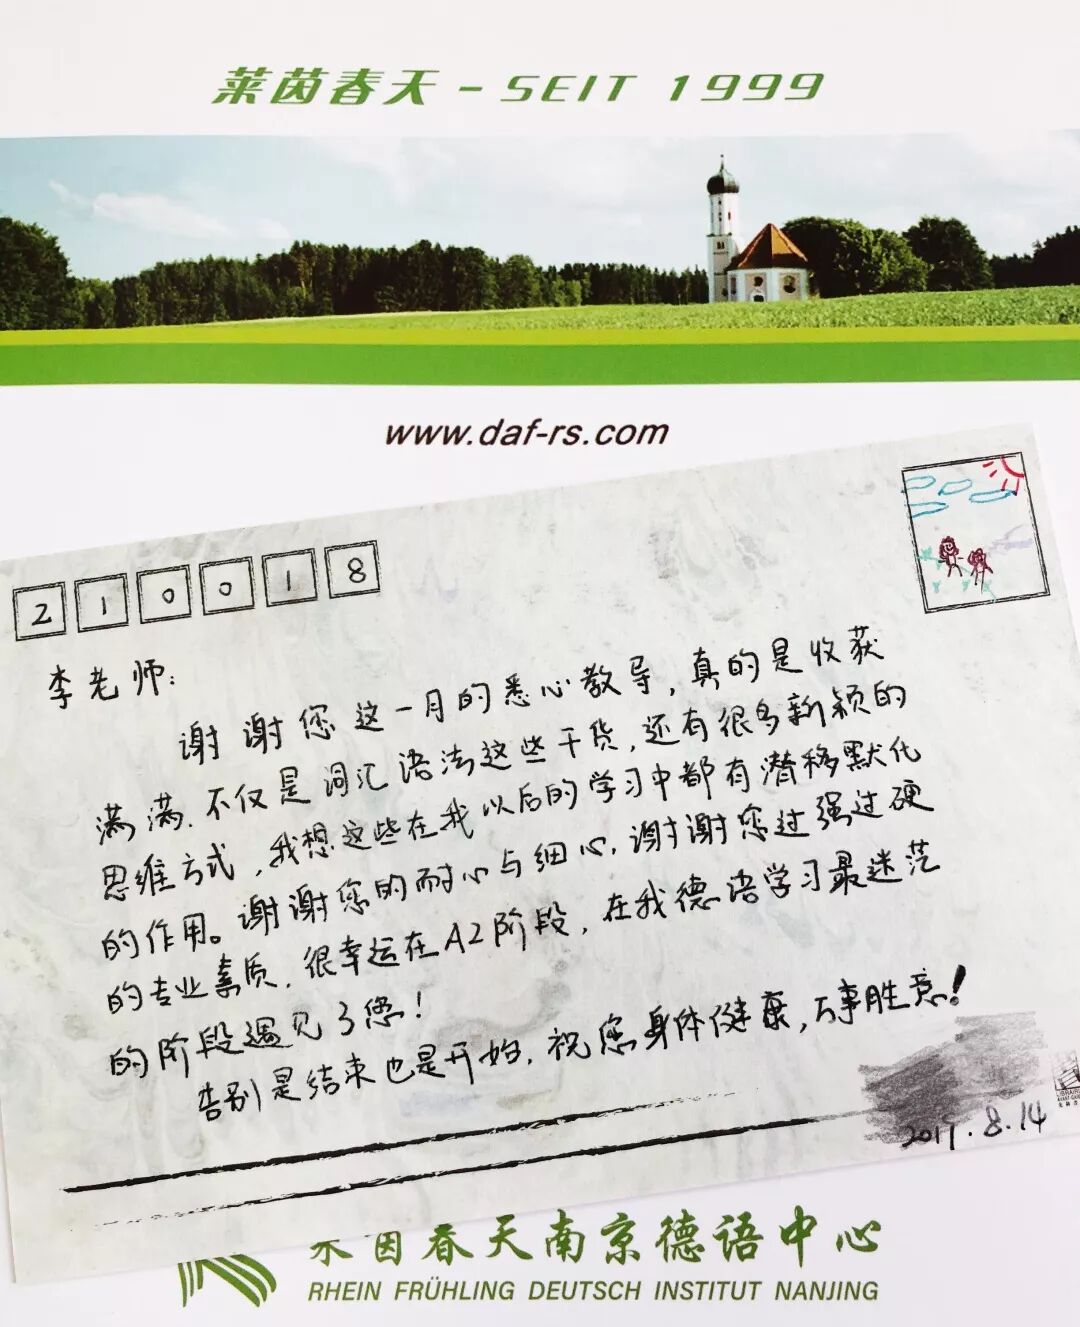 莱茵春天 - SEIT 1999
www.daf-rs.com
210018
李老师:
谢谢您这一月的悉心教导,真的是收获
满满.不仅是词汇语法这些干货,还有很多新颖的
思维方式,我想这些在我以后的学习中都有潜移默化
的作用。谢谢您的耐心与细心.谢谢您过强过硬
的专业素质.很幸运在A2阶段,在我德语学习最迷茫
的阶段遇见了您!
告别是结束也是开始.祝您身体健康,万事胜意!
8.14
莱茵春天南京德语中心
RHEIN FRÜHLING DEUTSCH INSTITUT NANJING